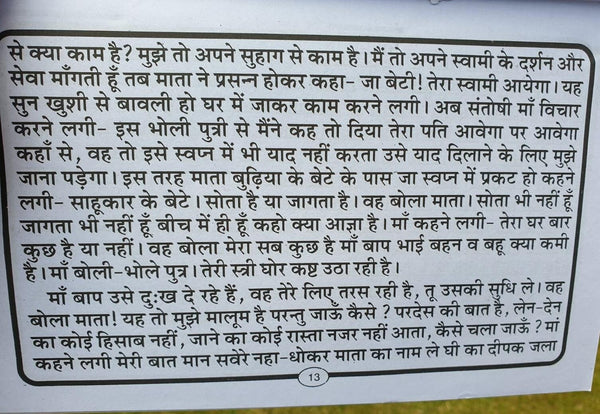 से क्या काम है? मुझे तो अपने सुहाग से काम है। मैं तो अपने स्वामी के दर्शन और
सेवा माँगती हूँ तब माता ने प्रसन्न होकर कहा- जा बेटी! तेरा स्वामी आयेगा। यह
सुन खुशी से बावली हो घर में जाकर काम करने लगी। अब संतोषी माँ विचार
करने लगी- इस भोली पुत्री से मैंने कह तो दिया तेरा पति आवेगा पर आवेगा
कहाँ से, वह तो इसे स्वप्न में भी याद नहीं करता उसे याद दिलाने के लिए मुझे
जाना पड़ेगा। इस तरह माता बुढ़िया के बेटे के पास जा स्वप्न में प्रकट हो कहने
लगी- साहूकार के बेटे। सोता है या जागता है। वह बोला माता। सोता भी नहीं हूँ
जागता भी नहीं हूँ बीच में ही हूँ कहो क्या आज्ञा है। माँ कहने लगी- तेरा घर बार
कुछ है या नहीं। वह बोला मेरा सब कुछ है माँ बाप भाई बहन व बहू क्या कमी
है। माँ बोली-भोले पुत्र। तेरी स्त्री घोर कष्ट उठा रही है।
माँ बाप उसे दुःख दे रहे हैं, वह तेरे लिए तरस रही है, तू उसकी सुधि ले। वह
बोला माता! यह तो मुझे मालूम है परन्तु जाऊँ कैसे ? परदेस की बात है, लेन-देन
का कोई हिसाब नहीं, जाने का कोई रास्ता नजर नहीं आता, कैसे चला जाऊँ ? माँ
कहने लगी मेरी बात मान सवेरे नहा-धोकर माता का नाम ले घी का दीपक जला
13